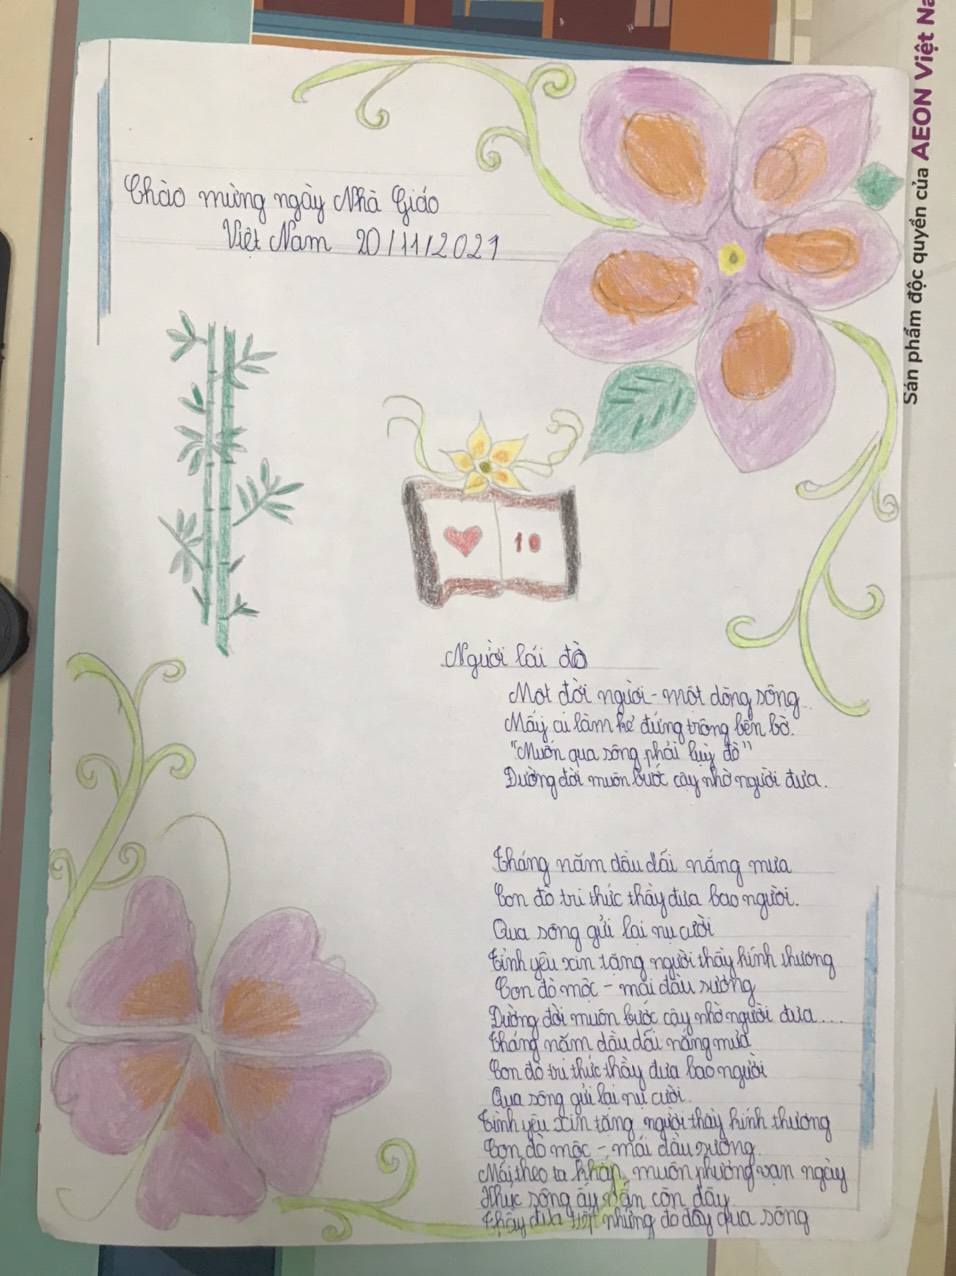 Chào mừng ngày Nhà Giáo
Việt Nam 20/11/2021
10
Người lái đò
Một đời người - một dòng sông
Mấy ai làm kẻ đứng trông bến bờ.
"Muốn qua sông phải luỵ đò"
Đường đời muôn bước cậy nhờ người đưa.
Tháng năm dầu dãi nắng mưa
Con đò tri thức thầy đưa bao người.
Qua sông gửi lại nụ cười
Tình yêu xin tặng người thầy kính thương
Con đò mộc - mái đầu sương
Đường đời muôn bước cậy nhờ người đưa....
Tháng năm dầu dãi nắng mưa
Con đò tri thức thầy đưa bao người
Qua sông gửi lại nụ cười.
Tình yêu xin tặng người thầy kính thương
Con đò mộc - mái đầu sương.
Mãi theo ta khắp muôn phương vạn ngày
Khúc sông ấy vẫn còn đây
Thầy đưa tiếp những đò đầy qua sông
Sản phẩm độc quyền của AEON Việt Na